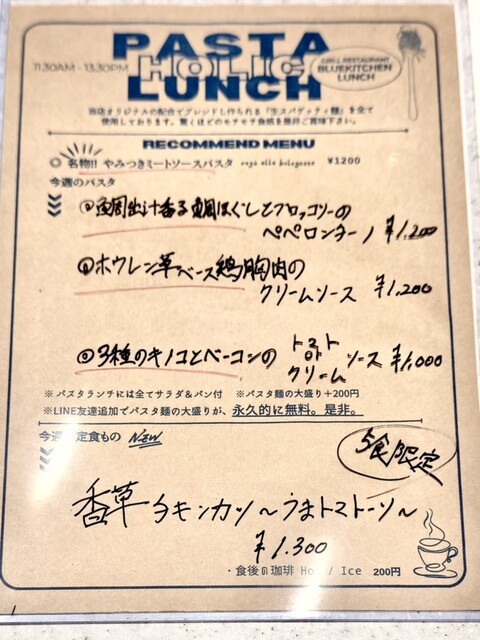 PASTA
HOLIC
LUNCH
11:30AM - 13:30PM
GRILL RESTAURANT
BLUEKITCHEN
LUNCH
当店オリジナルの配合でブレンドし作られる『生スパゲッティ麺』を全て
使用しております。驚くほどのモチモチ食感を是非ご賞味下さい。
RECOMMEND MENU
名物!! やみつきミートソースパスタ ragù alla bolognese ¥1200
今週のパスタ
鯛出汁香る鯛ほぐしとブロッコリーの
ペペロンチーノ ¥1,200
ホウレン草ベース鶏胸肉の
クリームソース ¥1,200
3種のキノコとベーコンの トマト or クリーム ソース ¥1,000
※ パスタランチには全てサラダ&パン付 ※パスタ麺の大盛り+200円
※LINE友達追加でパスタ麺の大盛りが、永久的に無料。是非。
今週の定食もの NEW
5食限定
香草チキンカツ〜うまトマトーソ〜
¥1.300
・食後の珈琲 Hot / Ice 200円